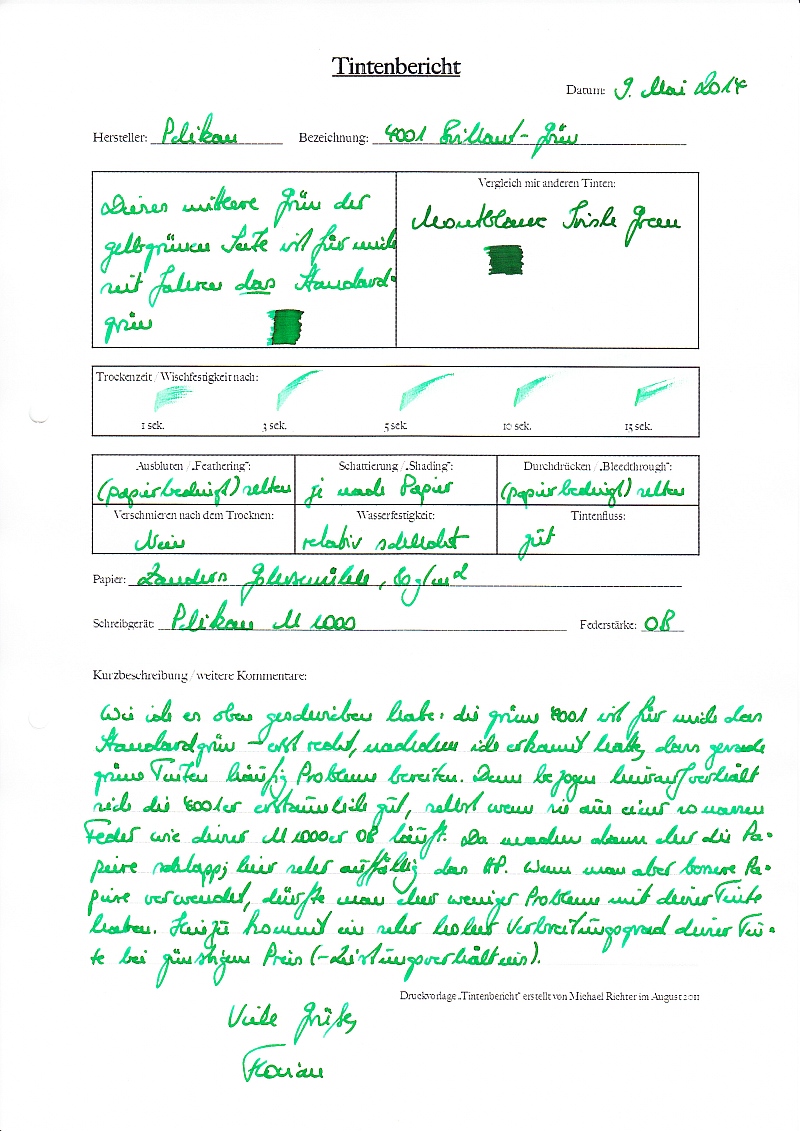 Tintenbericht
Datum: 9. Mai 2014
Hersteller: Pelikan Bezeichnung: 4001 Brillant-Grün
Dieses mittlere Grün der
gelbgrünen Seite ist für mich
seit Jahren das Standard-
grün
Vergleich mit anderen Tinten:
Montblanc Irish Green
Trockenzeit / Wischfestigkeit nach:
1 sek. 3 sek. 5 sek. 10 sek. 15 sek.
Ausbluten / „Feathering": Schattierung / „Shading": Durchdrücken / „Bleedthrough":
(papierbedingt) selten je nach Papier (papierbedingt) selten
Verschmieren nach dem Trocknen: Wasserfestigkeit: Tintenfluss:
Nein relativ schlecht gut
Papier: Zanders Gohrsmühle, 80 g/m²
Schreibgerät: Pelikan M 1000 Federstärke: OB
Kurzbeschreibung / weitere Kommentare:
Wie ich es oben geschrieben habe: die grüne 4001 ist für mich das
Standardgrün – erst recht, nachdem ich erkannt habe, dass gerade
grüne Tinten häufig Probleme bereiten. Denn bezogen hierauf verhält
sich die 4001er erstaunlich gut, selbst wenn sie aus einer so nassen
Feder wie dieser M 1000er OB läuft. Da machen dann eher die Pa-
piere schlapp; hier sehr auffällig das HP. Wenn man aber bessere Pa-
piere verwendet, dürfte man eher weniger Probleme mit dieser Tinte
haben. Hinzu kommt ein sehr hoher Verbreitungsgrad dieser Tin-
te bei günstigem Preis (-Leistungsverhältnis).
Druckvorlage „Tintenbericht" erstellt von Michael Richter im August 2011
Viele Grüße,
Florian